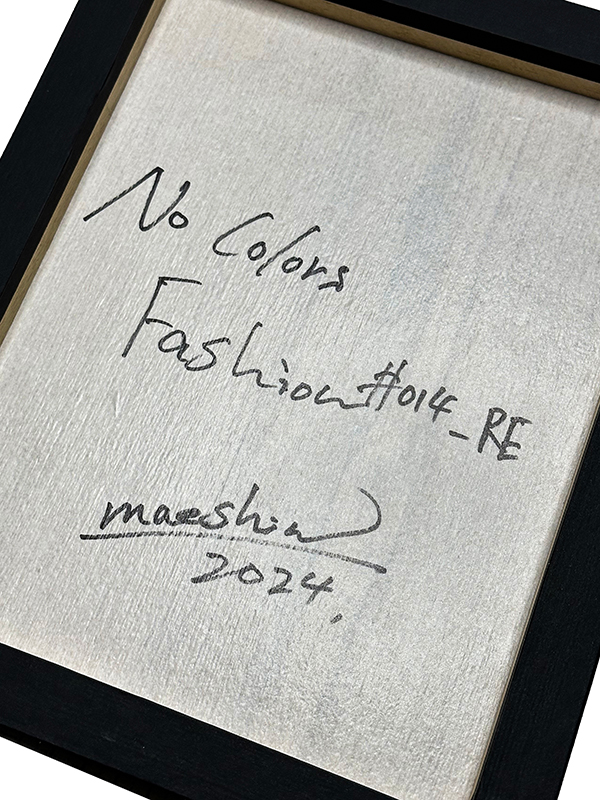 No Colors
Fashion #014_RE
maeshin
2024.